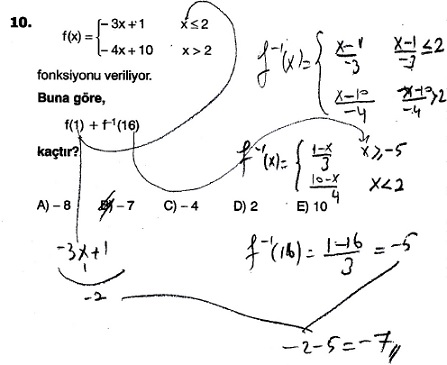 10.
f(x) = { -3x + 1    x ≤ 2
-4x + 10    x > 2
fonksiyonu veriliyor.
Buna göre,
f(1) + f⁻¹(16)
kaçtır?
A) – 8    B) – 7    C) – 4    D) 2    E) 10
f⁻¹(x) = { x-1/-3    x-1/-3 ≤ 2
x-10/-4    x-10/-4 > 2
f⁻¹(x) = { 1-x/3    x ≥ -5
10-x/4    x < 2
-3x+1
1
-2
f⁻¹(16) = 1-16/3 = -5
-2-5 = -7